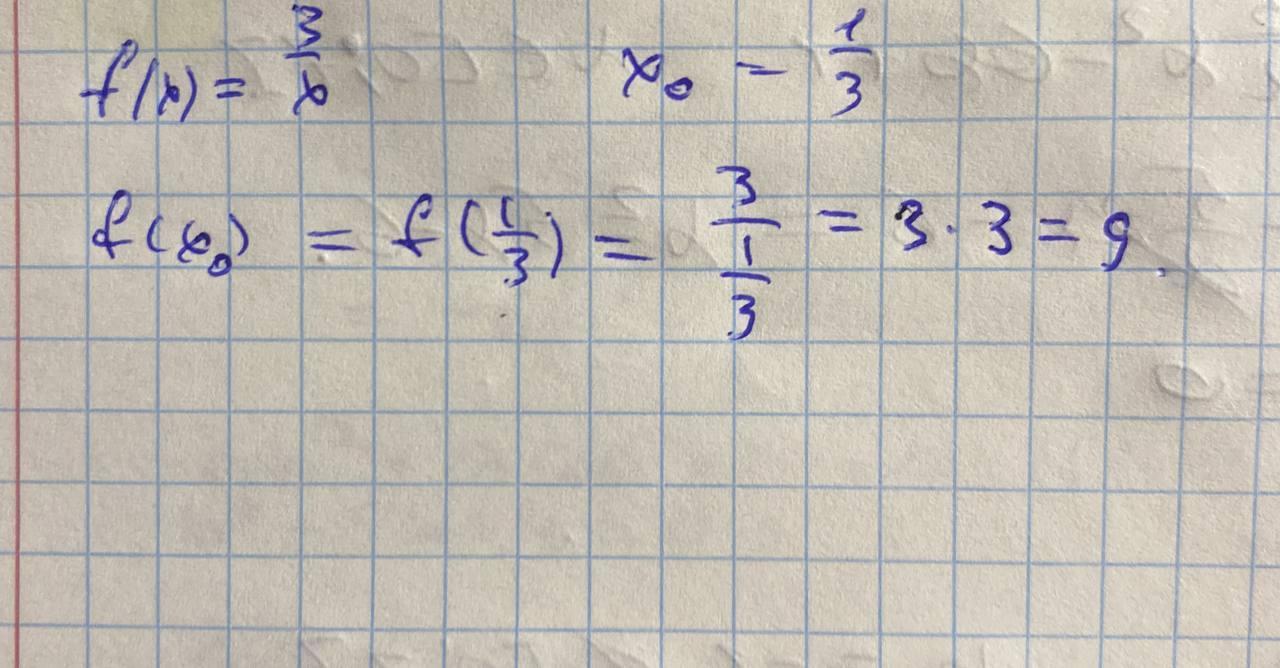 f(x) = 3/x x₀ = 1/3
f(x₀) = f(1/3) = 3/(1/3) = 3 · 3 = 9.